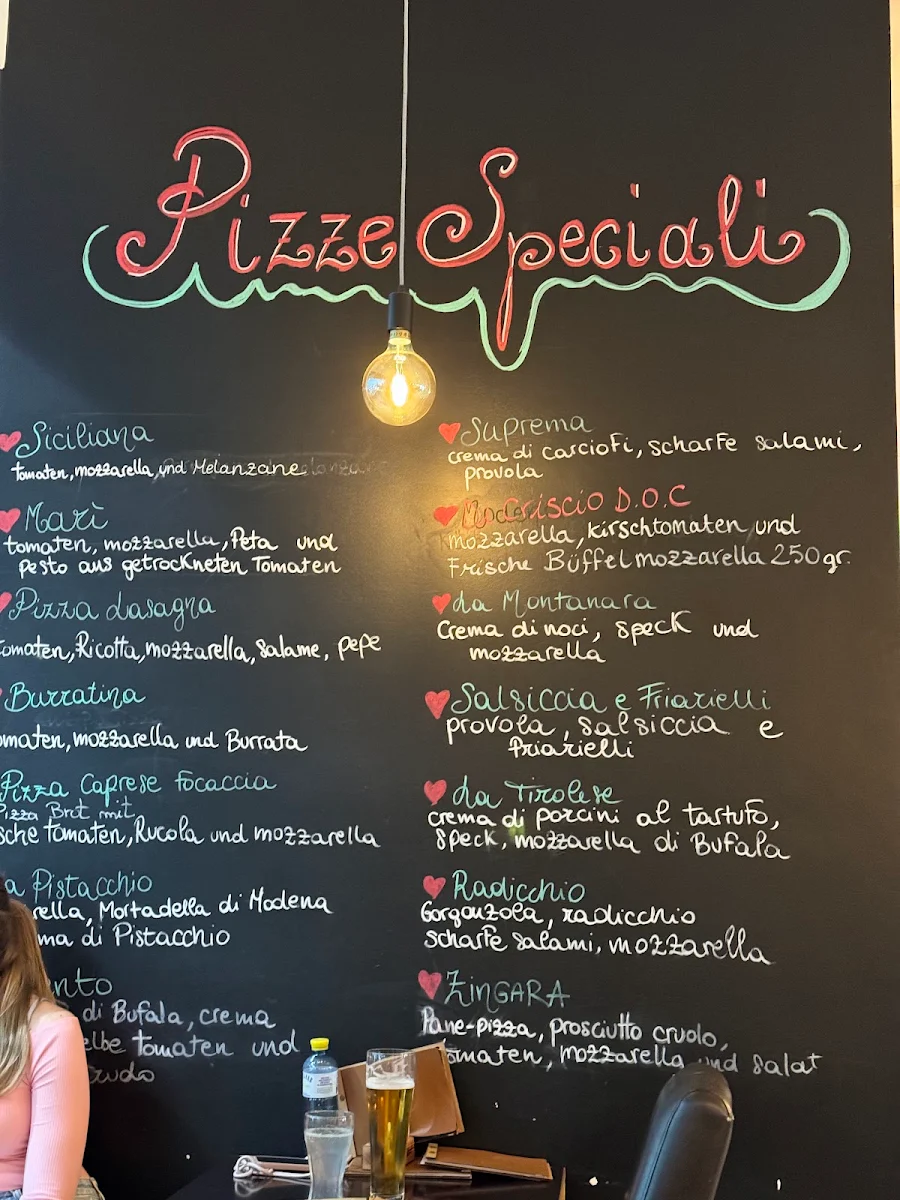 Pizze Speciali
Siciliana
Tomaten, mozzarella, und Melanzane
Marì
tomaten, mozzarella, Feta und
pesto aus getrockneten Tomaten
Pizza Lasagna
omaten, Ricotta, mozzarella, Salame, pepe
Burratina
omaten, mozzarella und Burrata
Pizza Caprese Focaccia
Pizza Brot mit
sche tomaten, Rucola und mozzarella
a Pistacchio
rella, Mortadella di Modena
ma di Pistacchio
nto
di Bufala, crema
elbe tomaten und
rudo
Suprema
crema di carciofi, scharfe salami,
provola
D.O.C
mozzarella, kirschtomaten und
Frische Büffelmozzarella 250gr.
La Montanara
Crema di noci, speck und
mozzarella
Salsiccia e Friarielli
provola, salsiccia e
Friarielli
La Tirolese
crema di porcini al tartufo,
speck, mozzarella di Bufala
Radicchio
Gorgonzola, radicchio
scharfe salami, mozzarella
ZINGARA
Pane-pizza, prosciutto crudo,
omaten, mozzarella und salat